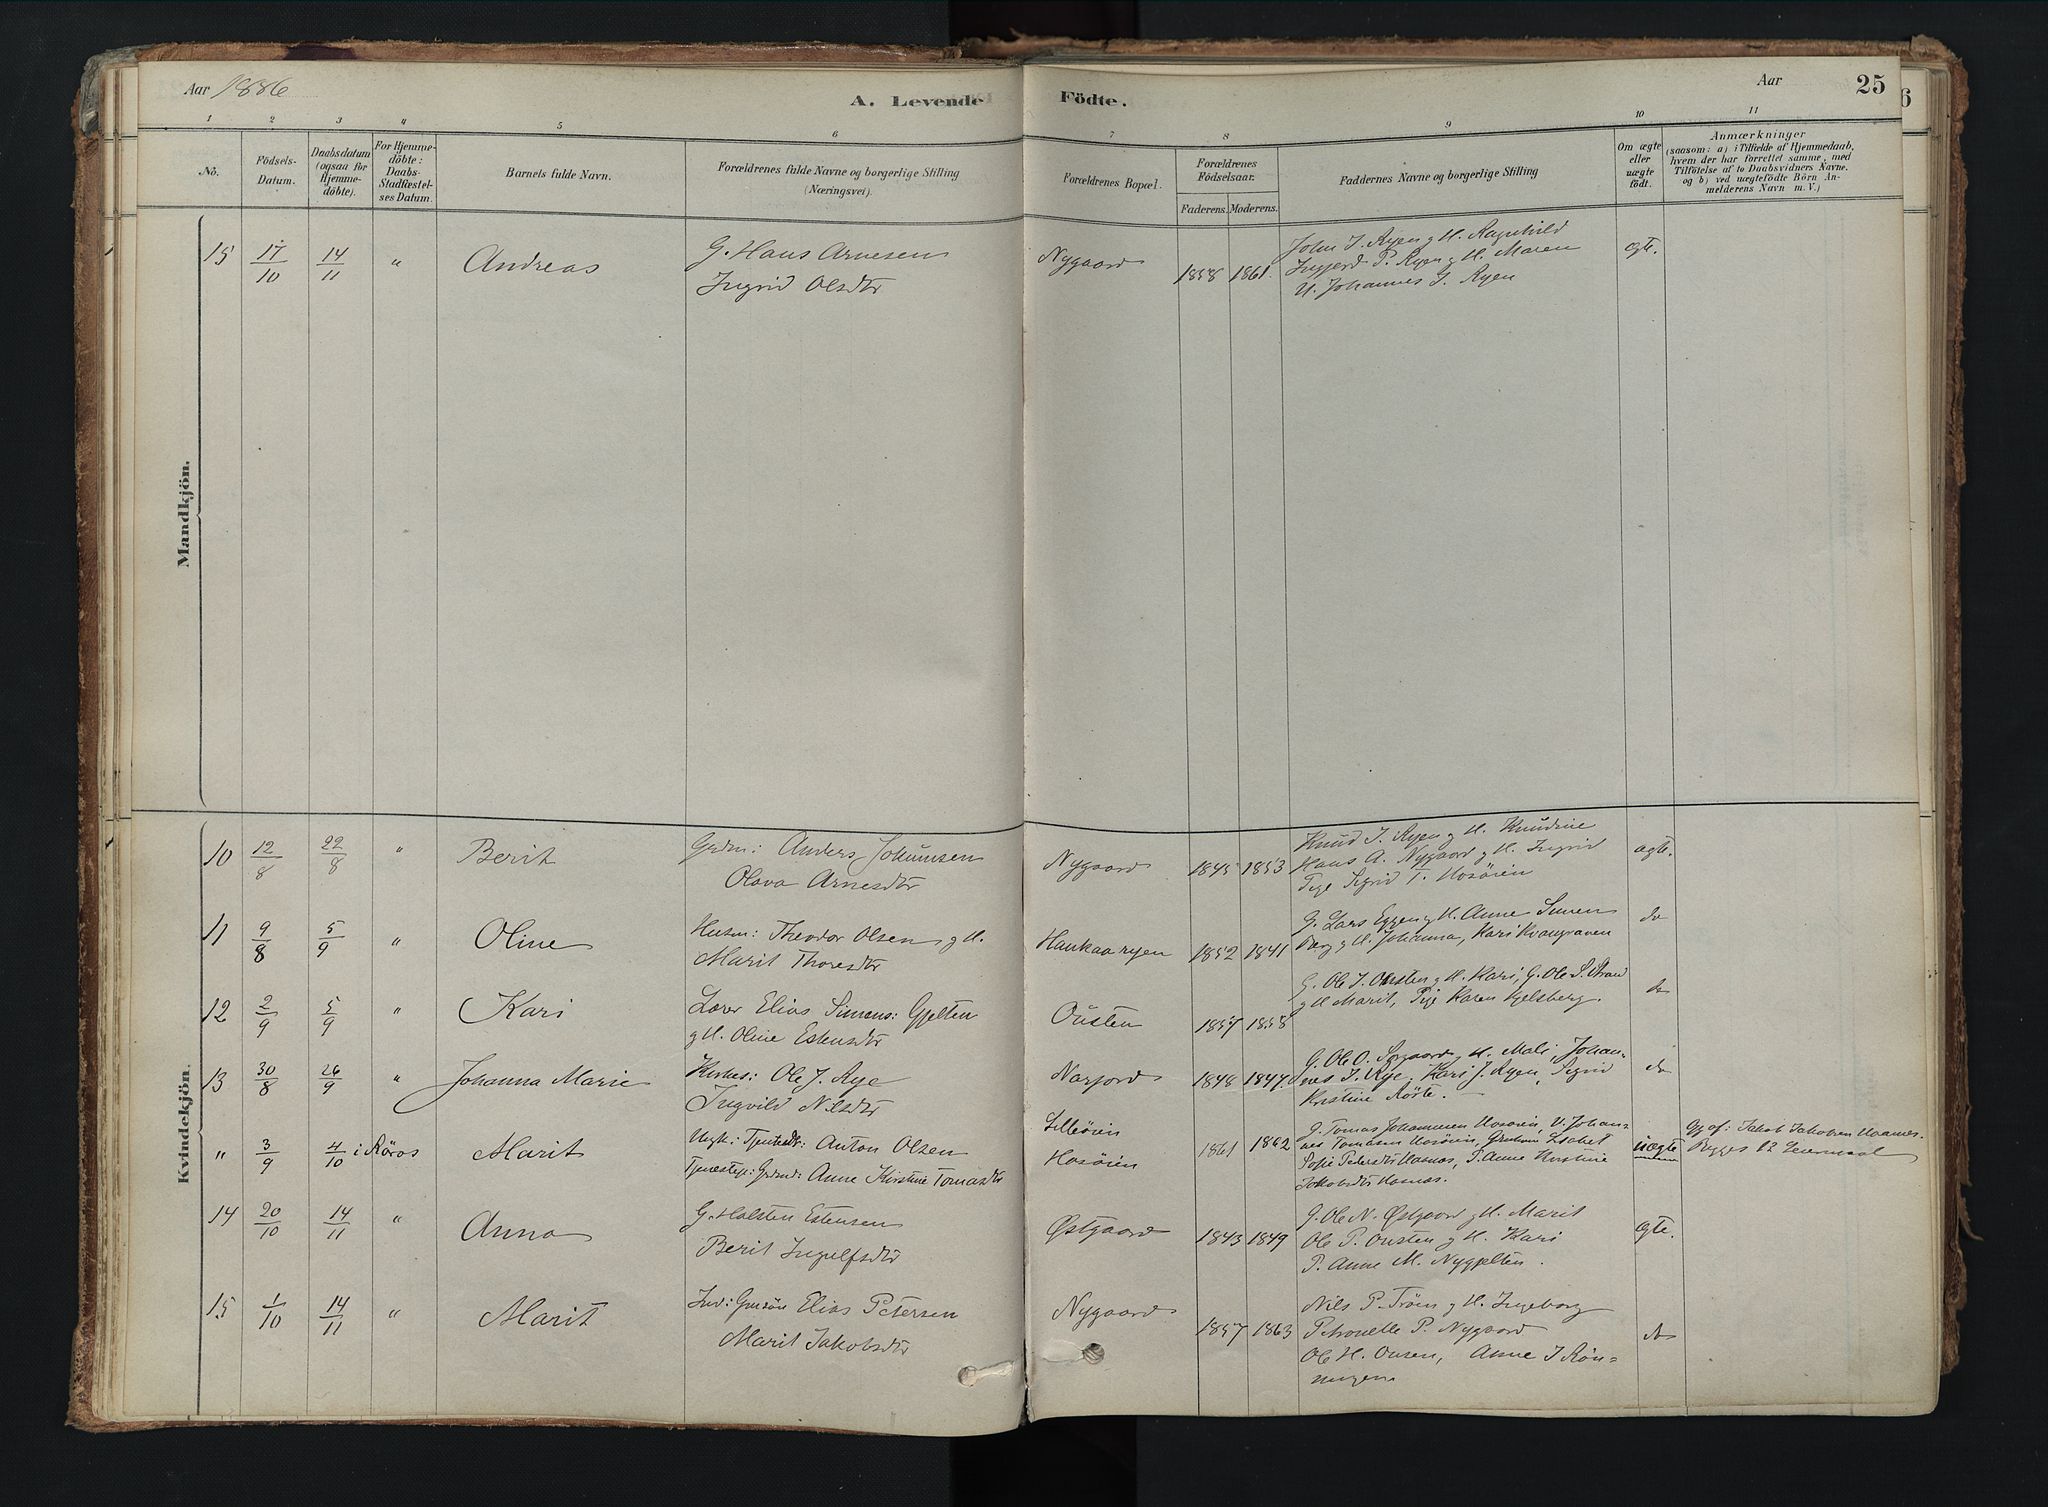 Aar 1886
A. Levende Födte.
Aar
25
6
1 2 3 4 5 6 7 8 9 10 11
No.
Födsels-
Datum.
Daabsdatum
(ogsaa for
Hjemme-
döbte).
For Hjemme-
döbte:
Daabs-
Stadfæstel-
ses Datum.
Barnets fulde Navn.
Forældrenes fulde Navne og borgerlige Stilling
(Næringsvei).
Forældrenes Bopæl.
Forældrenes
Födselsaar.
Faderens. Moderens.
Faddernes Navne og borgerlige Stilling
Om ægte
eller
uægte
födt.
Anmærkninger
(saasom: a) i Tilfælde af Hjemmedaab,
hvem der har forrettet samme, med
Tilföielse af to Daabsvidners Navne.
og b) ved uægtefödte Börn An-
melderens Navn m. V.)
Mandkjön.
15 17/10 14/11 " Andreas
G. Hans Arnesen
Ingrid Olsdtr
Nygaard 1858 1861.
John J. Ryen g H. Ragnhild
Ingjerd P. Ryen g H. Maren
U. Johannes J. Ryen
ægte.
Kvindekjön.
10 12/8 22/8 " Berit
Grdm: Anders Johannsen
Olava Arnesdtr
Nygaard 1845 1853
Knud J. Ryen g H. Knudine
Hans A. Nygaard g H. Ingrid
Pige Sigrid T. Hosöien
ægte.
11 9/8 5/9 " Oline
Husm: Theodor Olsen g H.
Marit Thoresdtr
Haukaaryen 1852 1841
G. Lars Eggen g H. Anne Simen
Berg g H. Johanna, Kari Kvangraven
do
12 2/9 5/9 " Kari
Lærer Elias Simens: Gjelten
g H. Oline Estensdtr
Ousten 1857 1858
G. Ole J. Ousten g H. Kari, G. Ole S. Strand
g H Marit, Pige Karen Kjelsberg.
do
13 30/8 26/9 " Johanna Marie
Kirkes: Ole J. Rye
Ingvild Nilsdtr
Narjord 1848 1847.
G. Ole O. g H. Mali, Johan-
nes J. Rye, Kari J. Ryen, Sigrid
Kristine Röste.
do
" 3/9 4/10 i Röros Marit
Ungk: Anton Olsen
Tjenestep: Anne Kirstine Tomasdtr
Lilleöien
Hosöien
1861 1862
G. Tomas Johannesen Hosöien, U. Johan-
nes Tomasen Hosöien,
Sofie Pedersdtr P. Anne Kirstine
Jakobsdtr
uægte
Jakob Jakobsen
Begges
14 20/10 14/11 " Anna
G. Halsten Estensen
Berit Ingulfsdtr
Østgaard 1843 1849
G. Ole N. Østgaard g H. Marit
Ole P. Ousten g H. Kari
P. Anne M. Nygjelten.
ægte.
15 1/10 14/11 " Marit
Elias Petersen
Marit Jakobsdtr
Nygaard 1857 1863
Nils P. Tröen g H. Ingeborg
Petronelle P. Nygaard
Ole H. Ousen, Anne J Rön-
ningen
do